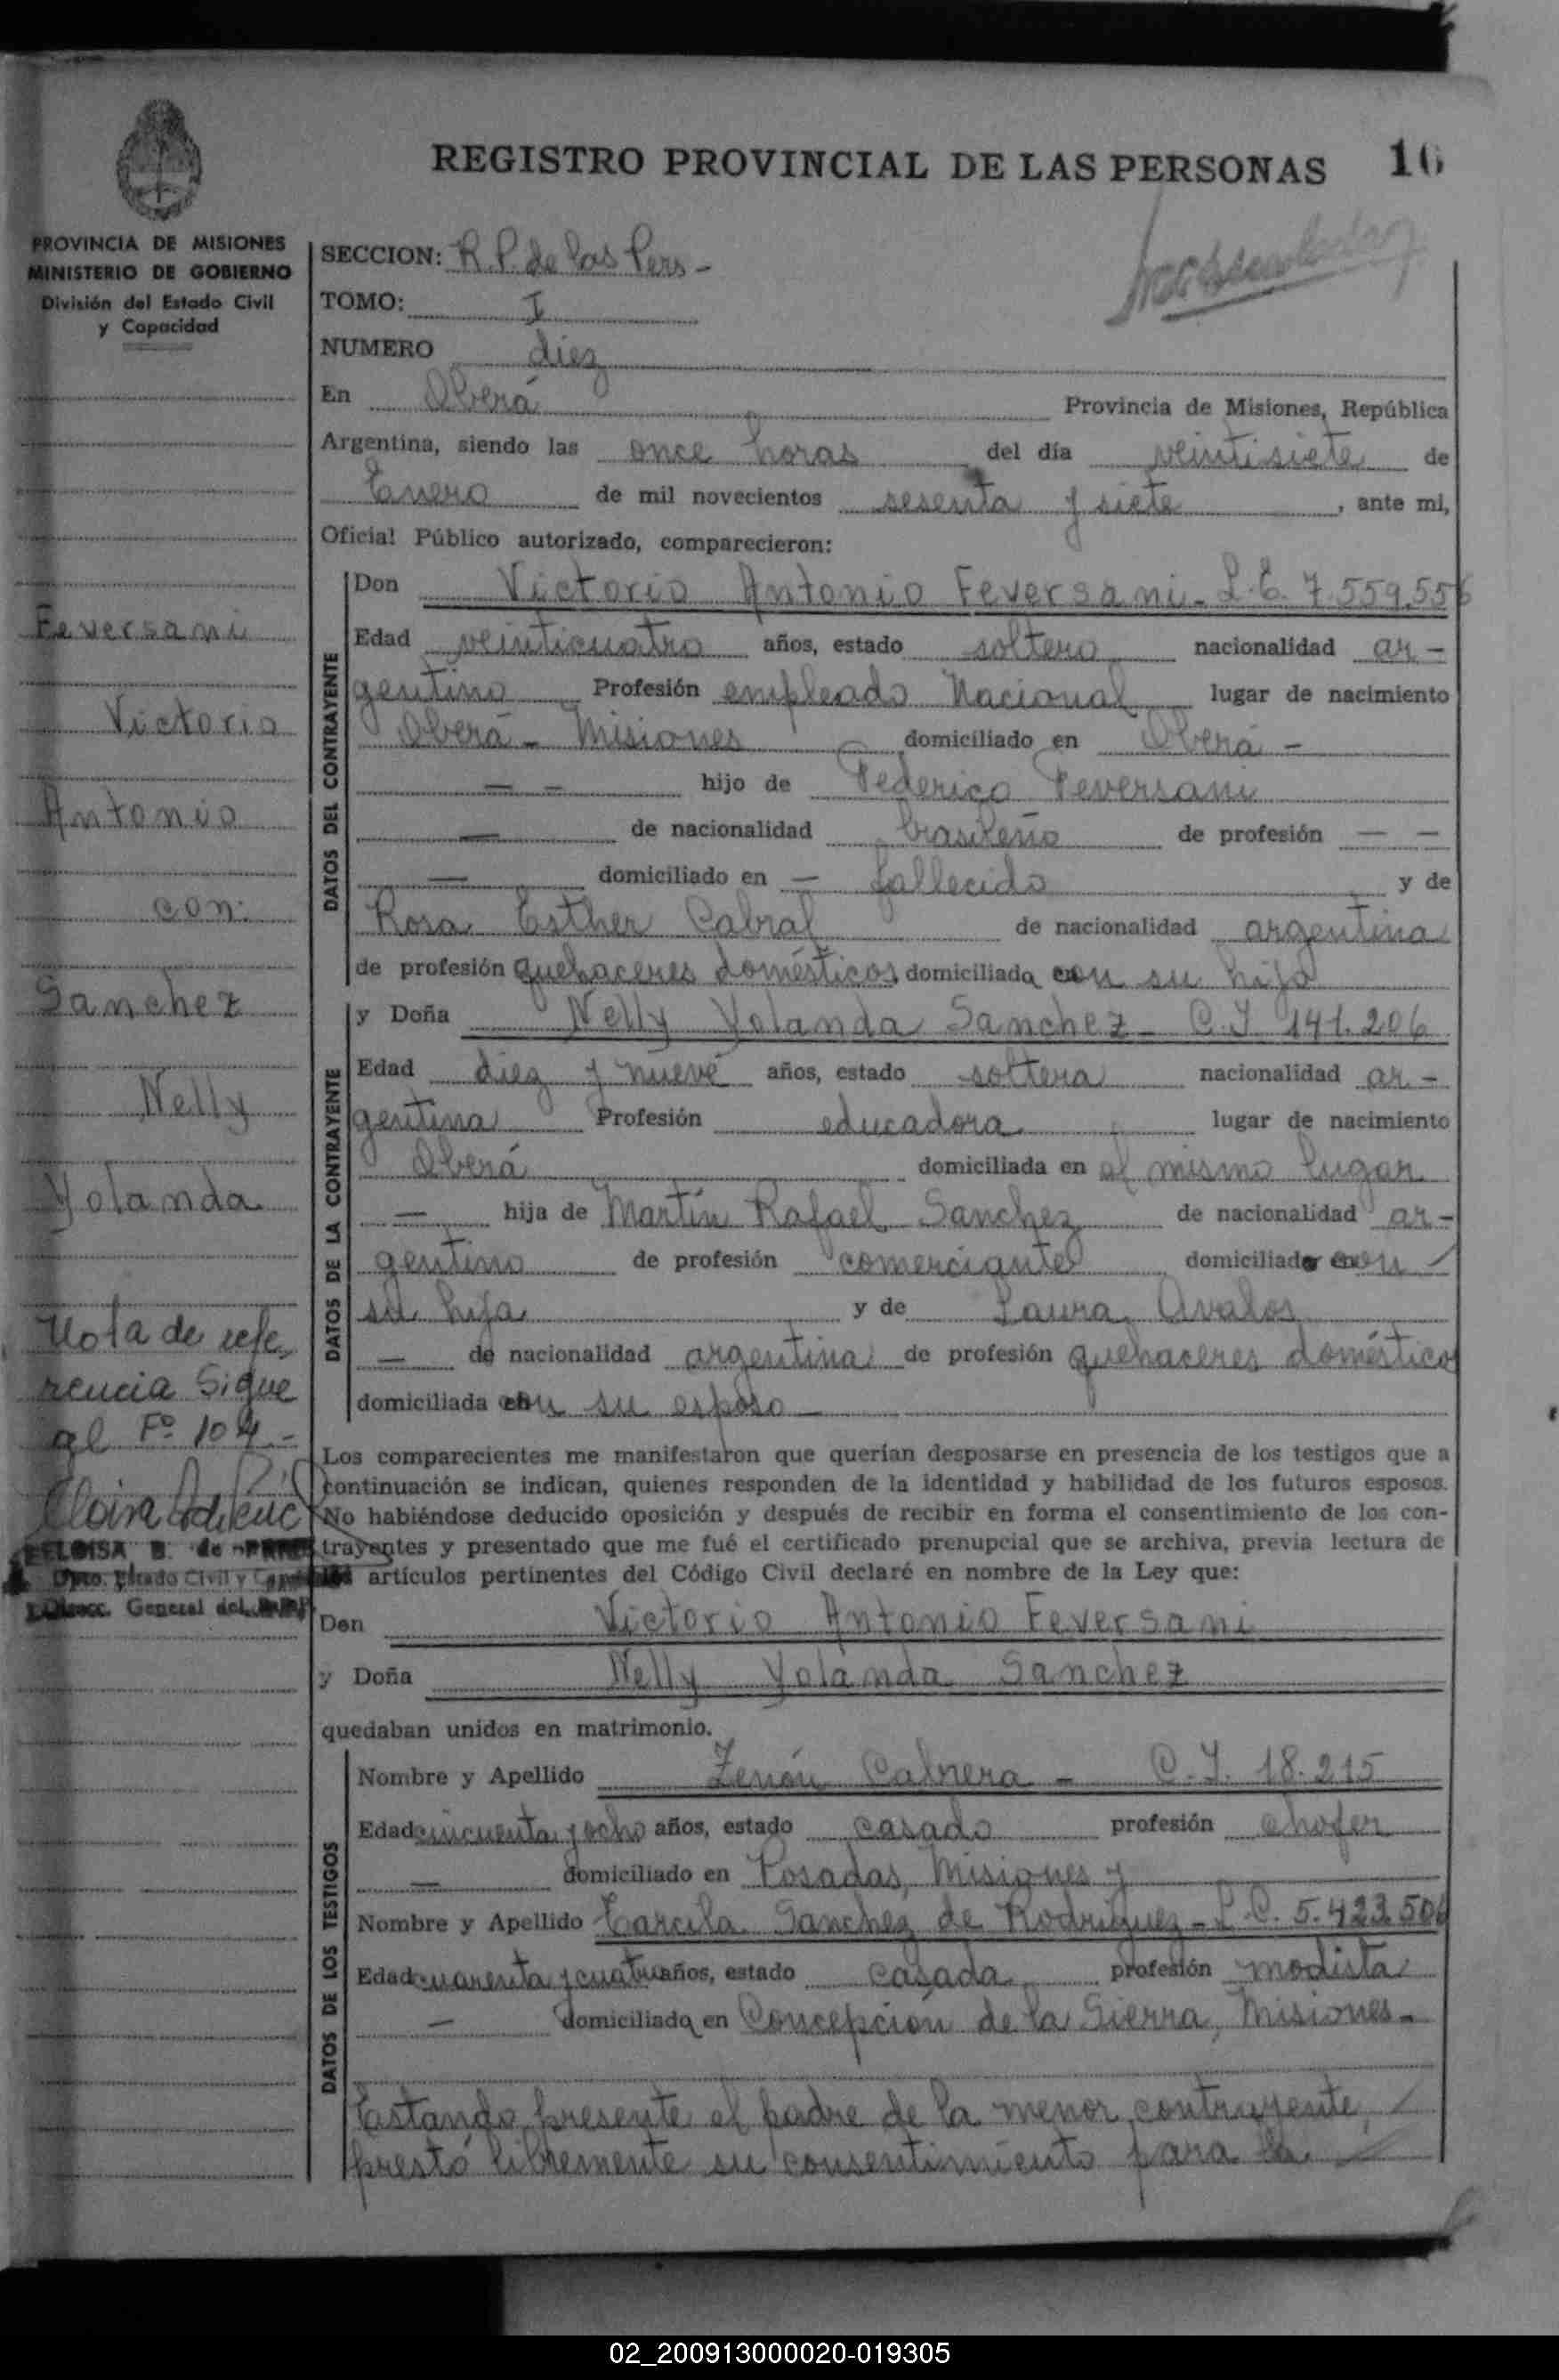 REGISTRO PROVINCIAL DE LAS PERSONAS 16
PROVINCIA DE MISIONES
MINISTERIO DE GOBIERNO
División del Estado Civil
y Capacidad
Feversani
Victorio
Antonio
con:
Sanchez
Nelly
Yolanda
Nota de refe
rencia Sigue
al Fº 104-
ELOISA B. de
Dpto. Estado Civil y
Direcc. General del
SECCION: R.P. de las Pers-
TOMO: I
NUMERO diez
En Oberá Provincia de Misiones, República
Argentina, siendo las once horas del día veintisiete de
Enero de mil novecientos sesenta y siete, ante mi,
Oficial Público autorizado, comparecieron:
DATOS DEL CONTRAYENTE
Don Victorio Antonio Feversani - L.E. 7.559.556
Edad veinticuatro años, estado soltero nacionalidad ar-
gentino Profesión empleado Nacional lugar de nacimiento
Oberá - Misiones domiciliado en Oberá -
— — hijo de Federico Feversani
— de nacionalidad brasileño de profesión — —
— domiciliado en — fallecido y de
Rosa Esther Cabral de nacionalidad argentina
de profesión quehaceres domésticos domiciliada con su hijo
DATOS DE LA CONTRAYENTE
y Doña Nelly Yolanda Sanchez - C.I 141.206
Edad diez y nueve años, estado soltera nacionalidad ar-
gentina Profesión educadora lugar de nacimiento
Oberá domiciliada en el mismo lugar
— hija de Martín Rafael Sanchez de nacionalidad ar-
gentino de profesión comerciante domiciliado con
su hija y de Laura Avalos
— de nacionalidad argentina de profesión quehaceres domésticos
domiciliada con su esposo —
Los comparecientes me manifestaron que querían desposarse en presencia de los testigos que a
continuación se indican, quienes responden de la identidad y habilidad de los futuros esposos.
No habiéndose deducido oposición y después de recibir en forma el consentimiento de los con-
trayentes y presentado que me fué el certificado prenupcial que se archiva, previa lectura de
artículos pertinentes del Código Civil declaré en nombre de la Ley que:
Don Victorio Antonio Feversani
y Doña Nelly Yolanda Sanchez
quedaban unidos en matrimonio.
DATOS DE LOS TESTIGOS
Nombre y Apellido Zenón Cabrera - C.I. 18.215
Edad cincuenta y ocho años, estado casado profesión chofer
— domiciliado en Posadas, Misiones y
Nombre y Apellido Tarcila Sanchez de Rodriguez - L.C. 5.423.506
Edad cuarenta y cuatro años, estado casada profesión modista
— domiciliada en Concepción de la Sierra, Misiones-
Estando presente el padre de la menor contrayente,
prestó libremente su consentimiento para la
02_200913000020-019305